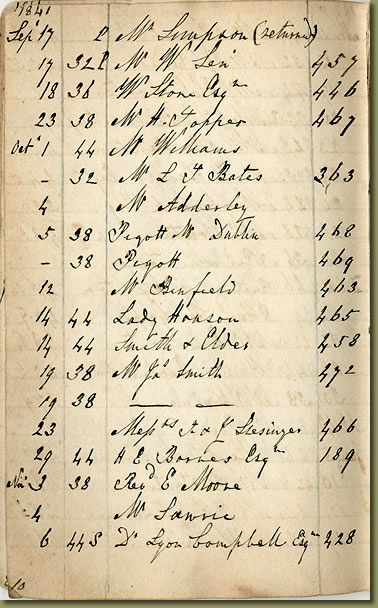 1841
Sepr 17 l Mr Simpson (returned)
17 32 l Mr W Len 457
18 38 W Stone Esqre 446
23 38 Mr H. Topper 467
Octr 1 44 Mr Williams
- 32 Mr L F Bates 363
4 Mr Adderley
5 38 Pigott Mr Dublin 468
- 38 Pigott 469
12 Mr Binfield 463
14 44 Lady Hanson 465
14 44 Smith & Elder 458
19 38 Mr Jas Smith 472
19 38 — —
23 Messrs A & J 466
29 44 H E Barnes Esqre 189
Novr 3 38 Revd E Moore
4 Mr Lawrie
6 44 S Dr Lyon Campbell Esqre 428